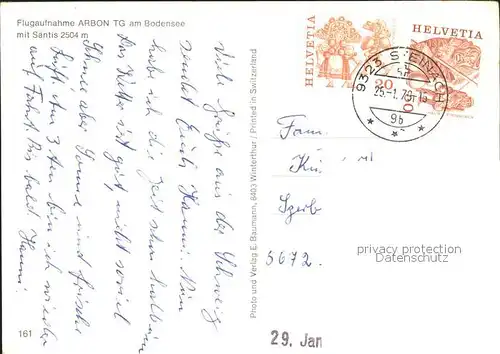 Flugaufnahme ARBON TG am Bodensee
mit Säntis 2504 m
Viele Grüße aus der Schweiz
sendet Euch Hanni. Nun
habe ich die Zeit schon halb um
Das Wetter ist gut, nicht soviel
Schnee, aber Sonne und frische
Luft. Am 3. bin ich wieder
auf Fahrt. Bis bald Hanni.
161
Photo und Verlag E. Baumann, 8403 Winterthur / Printed in Switzerland
HELVETIA
20
HELVETIA
9323 STEINACH
25.-1.78
9b
Fam.
Kü
5672.
privacy protection
Datenschutz
29. Jan